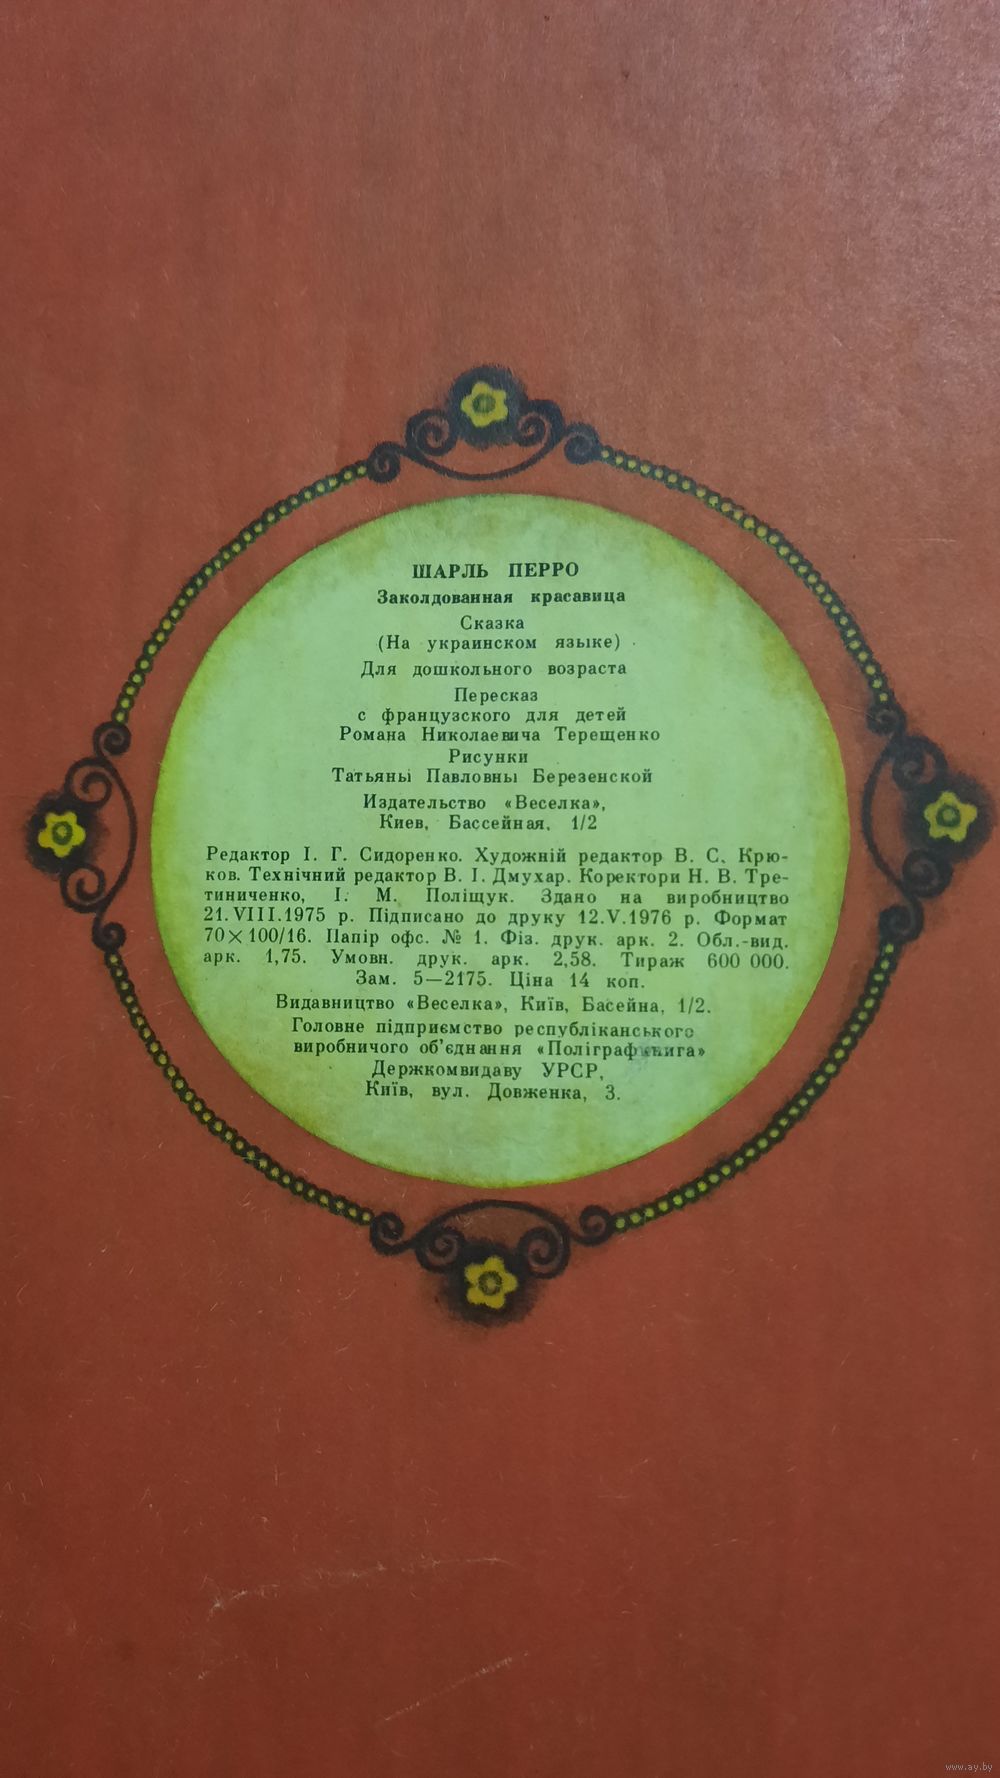 ШАРЛЬ ПЕРРО
Заколдованная красавица
Сказка
(На украинском языке)
Для дошкольного возраста
Пересказ
с французского для детей
Романа Николаевича Терещенко
Рисунки
Татьяны Павловны Березенской
Издательство «Веселка»,
Киев, Бассейная, 1/2
Редактор І. Г. Сидоренко. Художній редактор В. С. Крю-
ков. Технічний редактор В. І. Дмухар. Коректори Н. В. Тре-
тиниченко, І. М. Поліщук. Здано на виробництво
21.VIII.1975 р. Підписано до друку 12.V.1976 р. Формат
70×100/16. Папір офс. № 1. Фіз. друк. арк. 2. Обл.-вид.
арк. 1,75. Умовн. друк. арк. 2,58. Тираж 600 000.
Зам. 5—2175. Ціна 14 коп.
Видавництво «Веселка», Київ, Басейна, 1/2.
Головне підприємство республіканського
виробничого об'єднання «Поліграфкнига»
Держкомвидаву УРСР,
Київ, вул. Довженка, 3.
www.ay.by